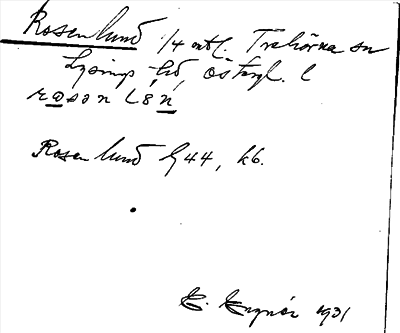 Rosenlund 1/4 mtl. Trehörna sn
Lysings hd, Östergl. l
rosən lɵ́n
Rosenlund G44, kb.
1931